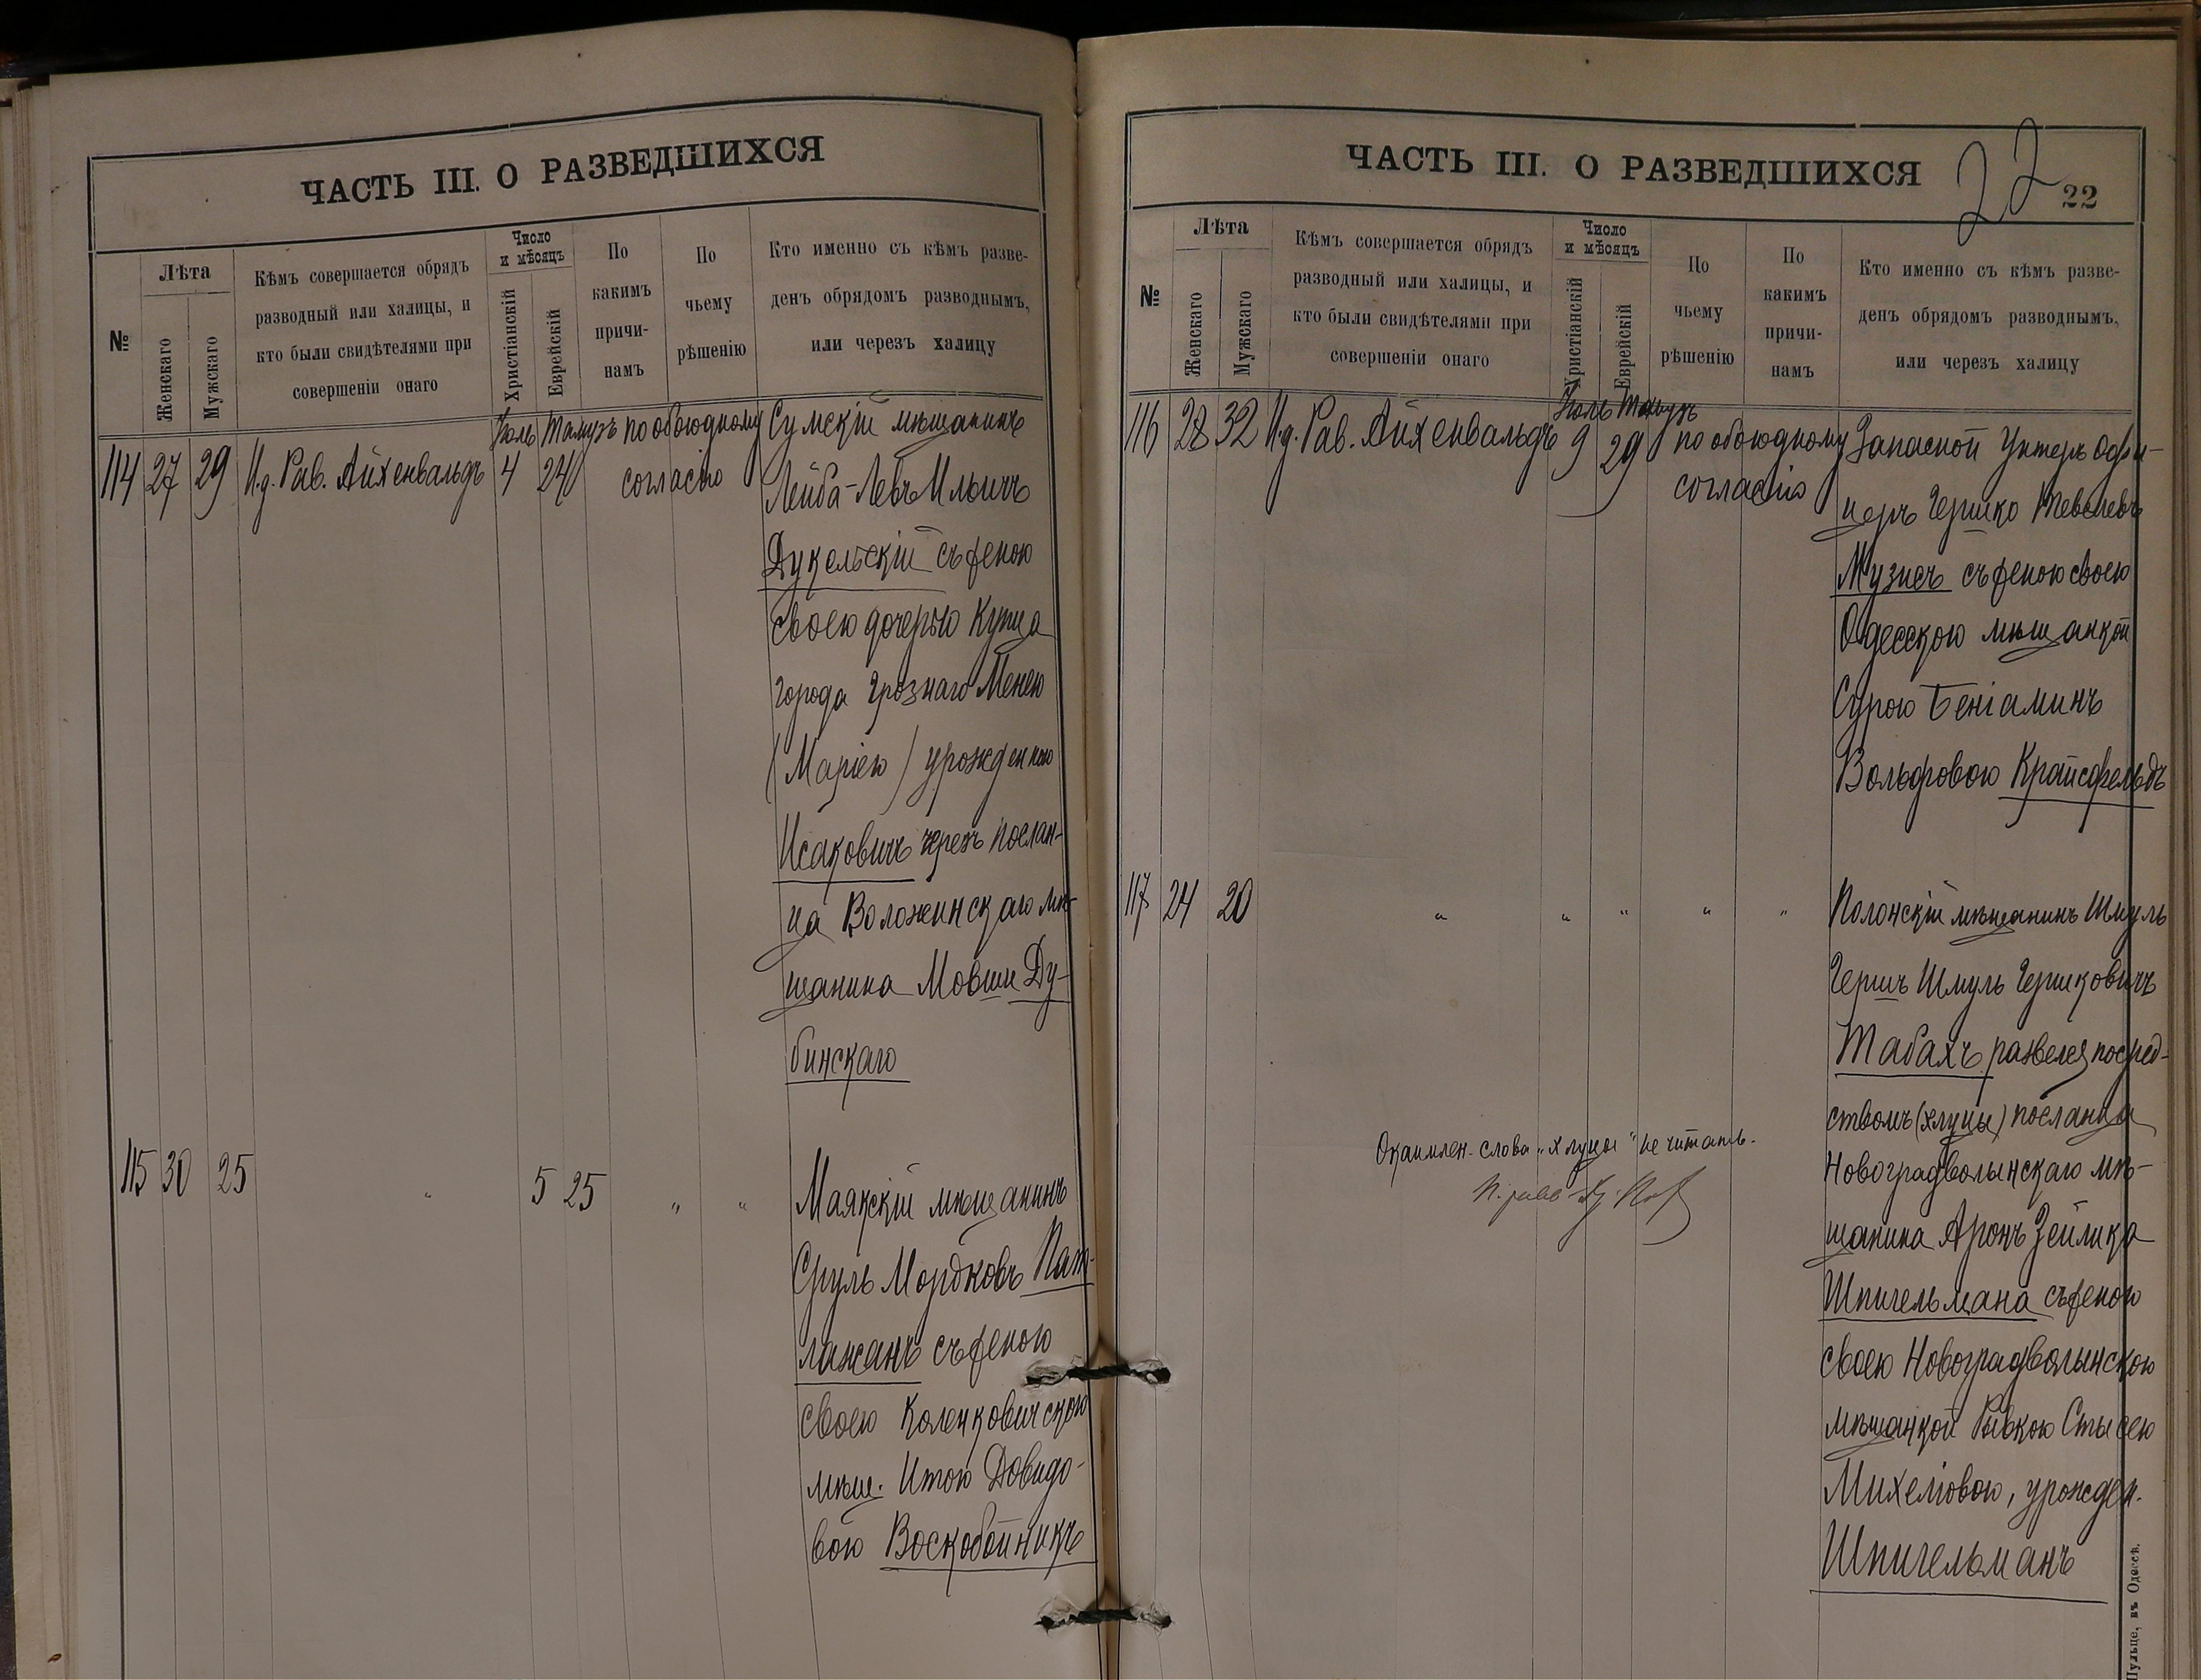 ЧАСТЬ III. О РАЗВЕДШИХСЯ
№
Лѣта
Женскаго
Мужскаго
Кѣмъ совершается обрядъ
разводный или халицы, и
кто были свидѣтелями при
совершеніи онаго
Число
и мѣсяцъ
Христіанскій
Еврейскій
По
какимъ
причи-
намъ
По
чьему
рѣшенію
Кто именно съ кѣмъ разве-
денъ обрядомъ разводнымъ,
или черезъ халицу
Іюль Тамузъ по обоюдному Сумскій мѣщанинъ
114 27 29 И.д. Рав. Айхенвальдъ 4 24 согласію Лейба-Левъ Ильичъ
Дукельскій съ женою
своею дочерью купца
города Грознаго Менею
(Маріею) урожденною
Исаковичъ черезъ послан-
ца Воложинскаго мѣ-
щанина Мовши Ду-
бинскаго
115 30 25 " 5 25 " " Маякскій мѣщанинъ
Сруль Мордковъ Пат-
лажанъ съ женою
своею Коленковичскою
мѣщ. Итою Давидо-
вою Воскобойникъ
ЧАСТЬ III. О РАЗВЕДШИХСЯ
22
22
№
Лѣта
Женскаго
Мужскаго
Кѣмъ совершается обрядъ
разводный или халицы, и
кто были свидѣтелями при
совершеніи онаго
Число
и мѣсяцъ
Христіанскій
Еврейскій
По
чьему
рѣшенію
По
какимъ
причи-
намъ
Кто именно съ кѣмъ разве-
денъ обрядомъ разводнымъ,
или черезъ халицу
Іюль Тамузъ
116 28 32 И.д. Рав. Айхенвальдъ 9 29 по обоюдному Запасной унтеръ офи-
согласію церъ Гершко Тевелевъ
Музисъ съ женою своею
Одесскою мѣщанкой
Сурою Беніаминъ
Вольфовою Крайсфельдъ
117 24 20 " " " " " Полонскій мѣщанинъ Шмуль
Гершъ Шмуль Гершковичъ
Табахъ развелся посред-
ствомъ (хлуцы) посланца
Новоградволынскаго мѣ-
щанина Аронъ Зейлика
Шпигельмана съ женою
своею Новоградволынскою
мѣщанкой Рывкою Стысею
Михелевою, урожден.
Шпигельманъ
Окаимлен. слова „хлуцы" не читать.
Пульце, въ Одессѣ.